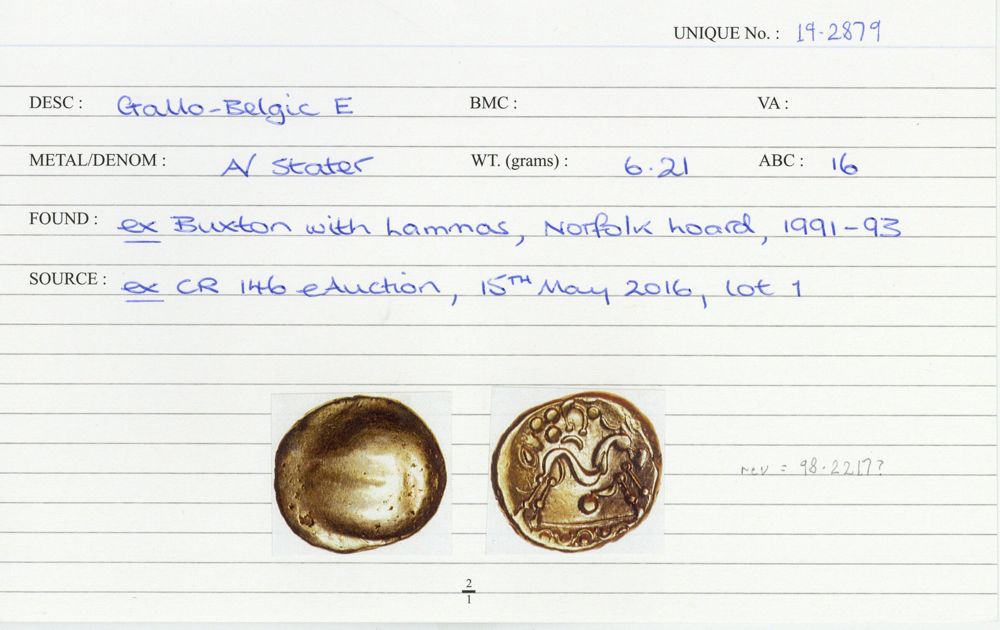 UNIQUE No. : 19·2879
DESC : Gallo-Belgic E BMC : VA :
METAL/DENOM : A/ Stater WT. (grams) : 6·21 ABC : 16
FOUND : ex Buxton with Lammas, Norfolk hoard, 1991-93
SOURCE : ex CR 146 eAuction, 15TH May 2016, lot 1
rev = 98·2217?
2
1